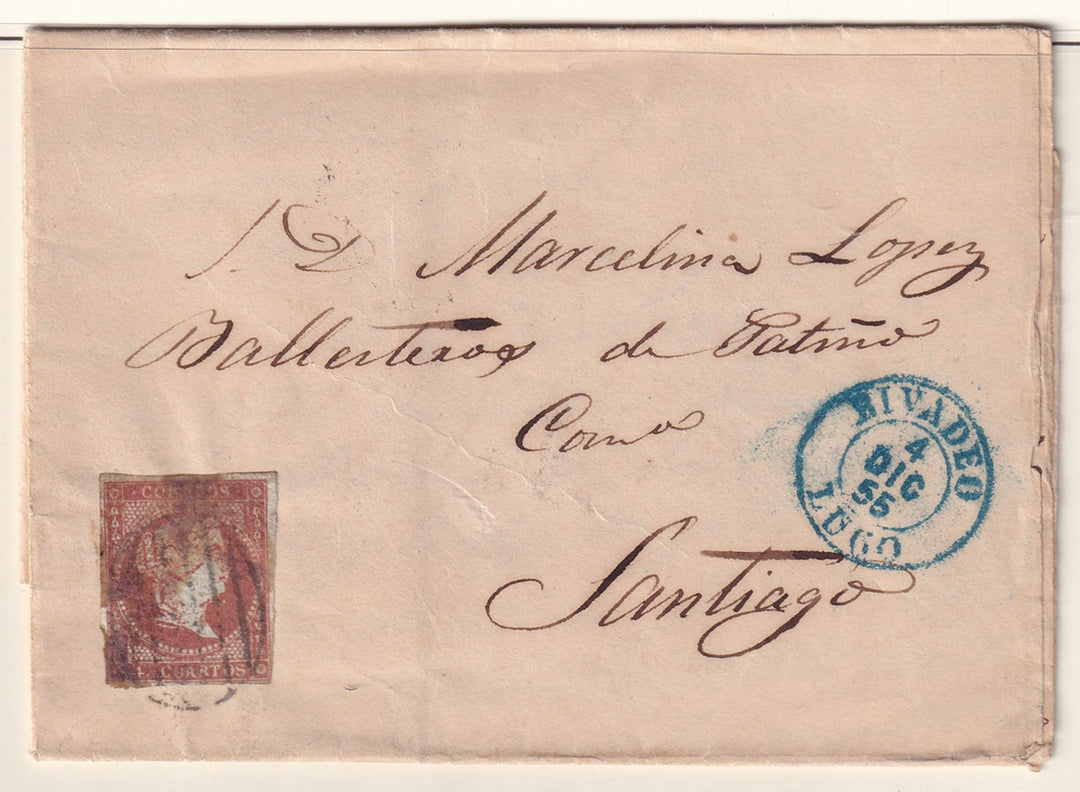 S. D. Marcelina Lopez
Ballesteros de Patiño
Santiago
RIVADEO
4
DIC
55
LUGO
CORREOS
4 CUARTOS